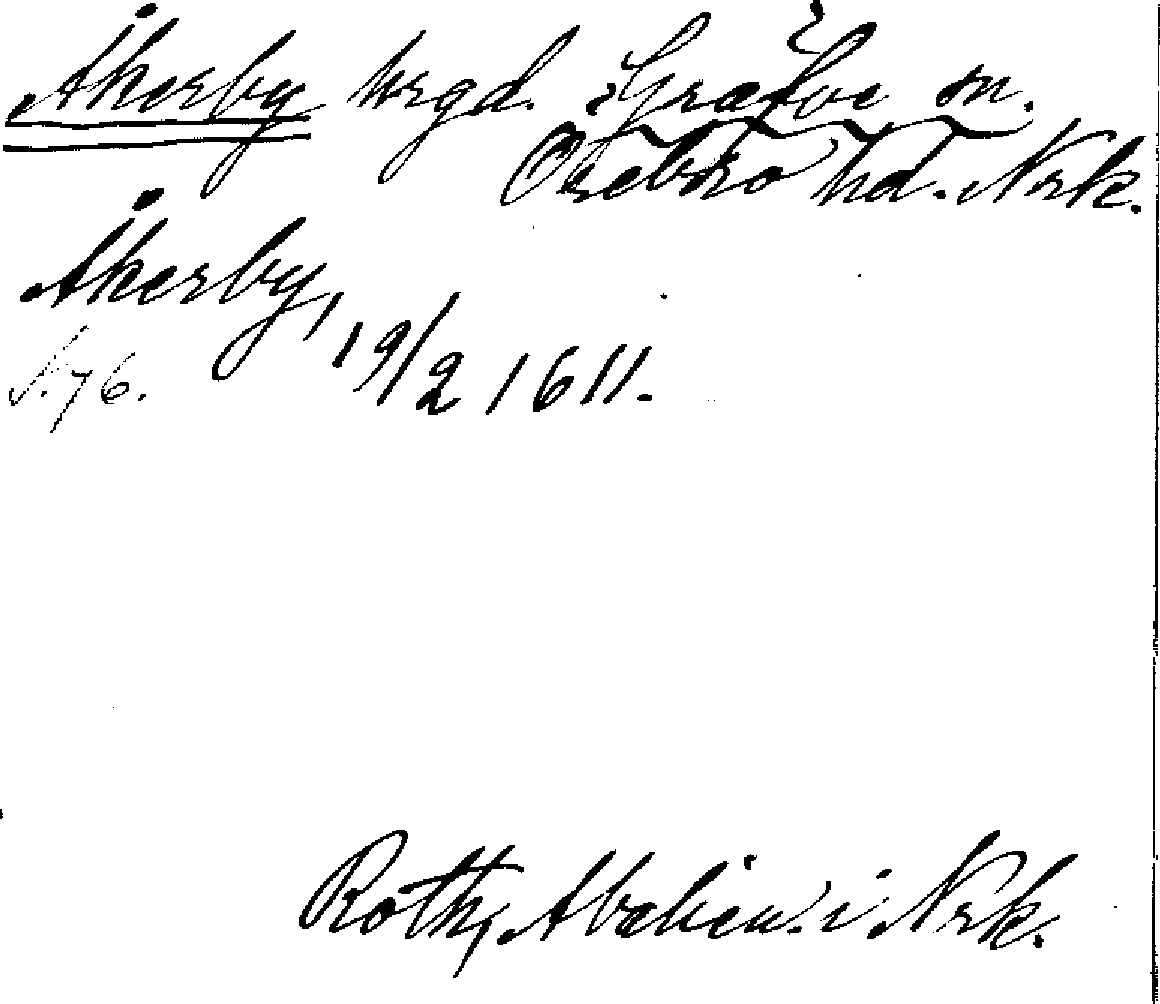 Åkerby hrgd. Græfve sn.
Örebro hd. Nrk.
Åkerby, 19/2 1611.
S. 76.
Roth, i Nrk.